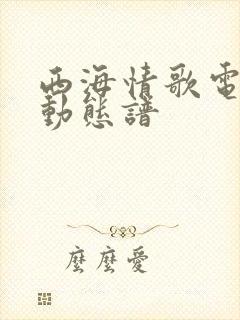 西海情歌電
動態譜
麼麼愛